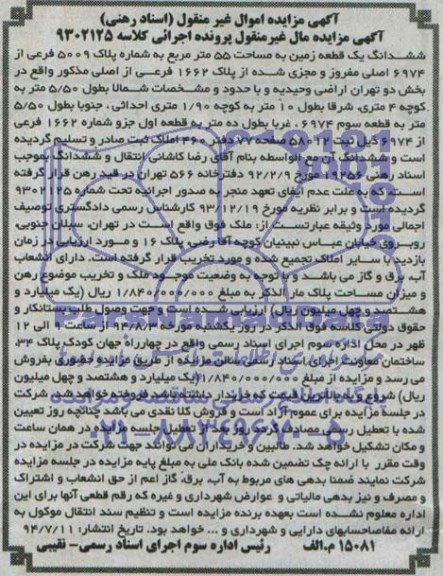 آگهی مزایده اموال غیر منقول (اسناد رهنی)
آگهی مزایده مال غیرمنقول پرونده اجرائی کلاسه ۹۳۰۲۱۲۵
ششدانگ یک قطعه زمین به مساحت ۵۵ متر مربع به شماره پلاک ۵۰۰۹ فرعی از
۶۹۷۴ اصلی مفروز و مجزی شده از پلاک ۱۶۶۲ فرعی از اصلی مذکور واقع در
بخش دو تهران اراضی وحیدیه و با حدود و مشخصات شمالا بطول ۵/۵۰ متر به
کوچه ۴ متری، شرقا بطول ۱۰ متر به کوچه ۱/۹۰ متری احداثی، جنوبا بطول ۵/۵۰
متر به قطعه سوم ۶۹۷۴، غربا بطول ده متر به قطعه اول جزو شماره ۱۶۶۲ فرعی
از ۶۹۷۴ ذیل ثبت ۵۸۰۱۲ صفحه ۷۷ دفتر ۴۶۰ املاک ثبت صادر و تسلیم گردیده
است و ششدانگ آن مع الواسطه بنام آقای رضا کاشانی انتقال و ششدانگ بموجب
اسناد رهنی ۱۹۲۵۶ مورخ ۹۲/۲/۹ دفترخانه ۵۶۶ تهران در قید رهن قرار گرفته
است، که به علت عدم ایفای تعهد منجر به صدور اجرائیه تحت شماره ۹۳۰۲۱۲۵
گردیده است و برابر نظریه مورخ ۹۳/۱۲/۱۹ کارشناس رسمی دادگستری توصیف
اجمالی مورد وثیقه عبارتست از: ملک فوق واقع است در تهران، سبلان جنوبی،
روبروی خیابان عباس نبینیان کوچه آقا رضی، پلاک ۱۶ و مورد ارزیابی در زمان
بازدید با سایر املاک تجمیع شده و مورد تخریب قرار گرفته است. دارای انشعاب
آب، برق و گاز می باشد. و با توجه به وضعیت موجود ملک و تخریب موضوع رهن
و میزان مساحت پلاک مار الذکر به مبلغ ۱/۸۴۰/۰۰۰/۰۰۰ ریال (یک میلیارد و
هشتصد و چهل میلیون ریال) ارزیابی شده است و جهت وصول طلب بستانکار و
حقوق دولتی کلاسه فوق الذکر در روز یکشنبه مورخه ۹۴/۸/۳ از ساعت ۹ الی ۱۲
ظهر در محل اداره سوم اجرای اسناد رسمی واقع در چهارراه جهان کودک پلاک ۳۴،
ساختمان معاونت اجرای اسناد رسمی سالن مزایده از طریق مزایده حضوری بفروش
می رسد و مزایده از مبلغ ۱/۸۴۰/۰۰۰/۰۰۰ (یک میلیارد و هشتصد و چهل میلیون
ریال) شروع و به بالاترین قیمت که خریدار داشته باشد فروخته خواهد شد. شرکت
در جلسه مزایده برای عموم آزاد است و فروش کلا نقدی می باشد چنانچه روز تعیین
شده با تعطیل رسمی مصادف گردد روز بعد از تعطیل جلسه مزایده در همان ساعت
و مکان تشکیل خواهد شد. طالبین و خریداران می توانند جهت شرکت در مزایده در
وقت مقرر با ارائه چک تضمین شده بانک ملی به مبلغ پایه مزایده در جلسه مزایده
شرکت نمایند ضمنا بدهی های مربوط به آب، برق، گاز اعم از حق انشعاب و اشتراک
و مصرف و نیز بدهی مالیاتی و عوارض شهرداری و غیره که رقم قطعی آنها برای این
اداره معلوم نشده است بعهده برنده مزایده است و تنظیم سند انتقال موکول به
ارائه مفاصاحسابهای دارایی و شهرداری و ... خواهد بود. تاریخ انتشار: ۹۴/۷/۱۱
۱۵۰۸۱ م.الف رئیس اداره سوم اجرای اسناد رسمی- نقیبی
۰۲۱-۸۸۳۴۹۶۷۰-۵